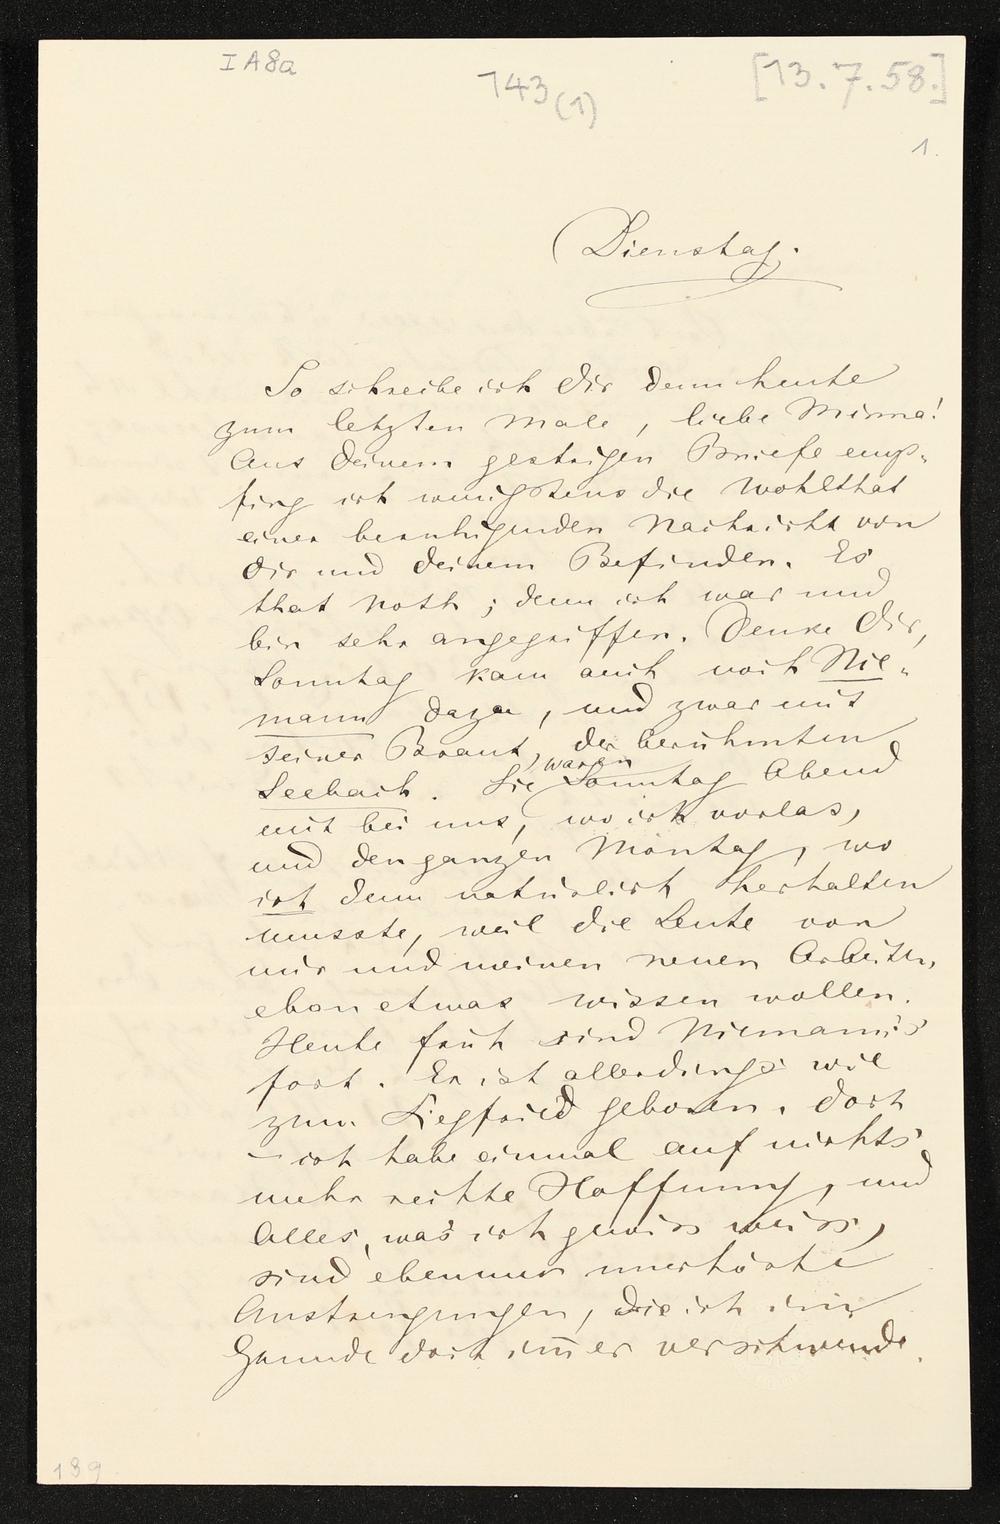 I A 8a
143 (1)
[13.7.58.]
1.
Dienstag.
So schreibe ich dir denn heute
zum letzten Male, liebe Minna!
Aus deinem gestrigen Briefe emp-
fing ich wenigstens die Wohlthat
einer beruhigenden Nachricht von
dir und deinem Befinden. Es
that Noth; denn ich war und
bin sehr angegriffen. Denke dir,
Sonntag kam auch noch Nie-
mann dazu, und zwar mit
seiner Braut, der berühmten
Seebach. Sie waren Sonntag Abend
mit bei uns, wo ich vorlas,
und den ganzen Montag, wo
ich denn natürlich herhalten
musste, weil die Leute von
mir und meinen neuen Arbeiten
eben etwas wissen wollen.
Heute früh sind Niemann's
fort. Er ist allerdings wie
zum Siegfried geboren. Doch
– ich habe einmal auf nichts
mehr rechte Hoffnung, und
Alles, was ich gewiss weiss,
sind eben nur unerhörte
Anstrengungen, die ich im
Grunde doch im̄er verschwende.
139